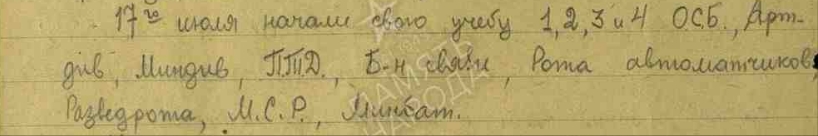 17го июля начали свою учебу 1, 2, 3 и 4 ОСБ., Арт-
див, Миндив, ПТД., Б-н связи, Рота автоматчиков,
Разведрота, М.С.Р., Минбат.
ПАМЯТЬ
НАРОДА